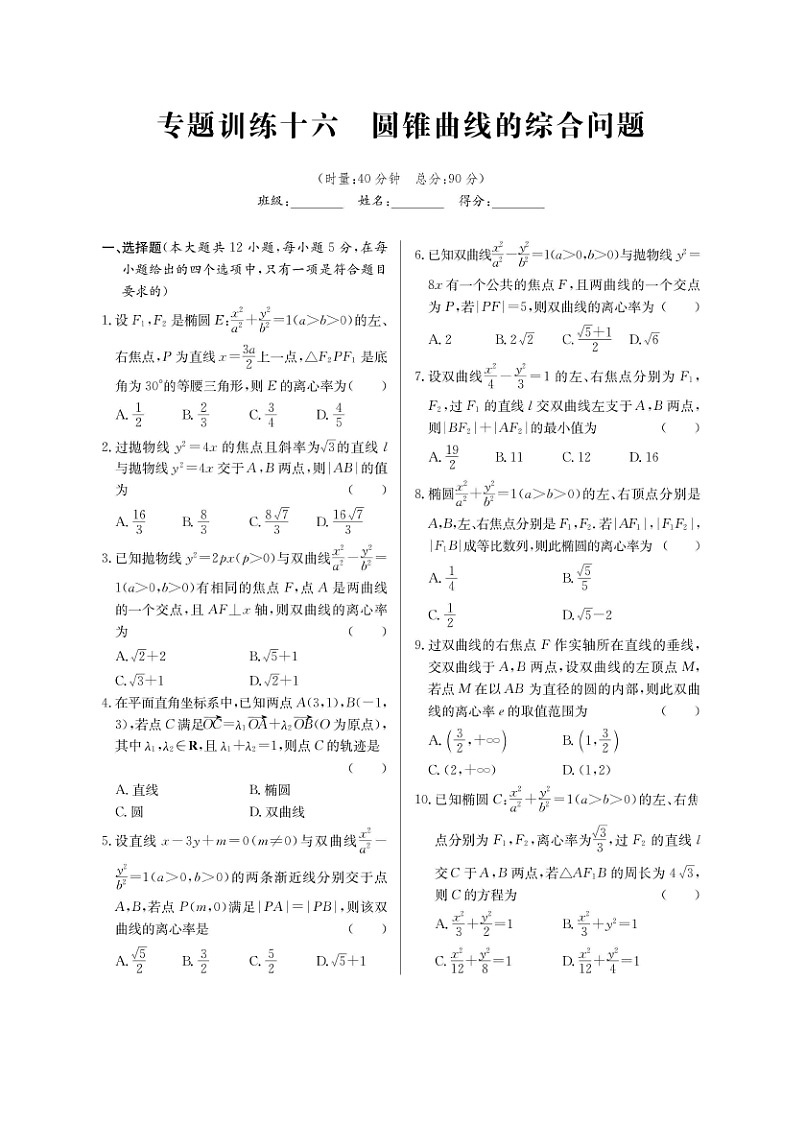 专题训练十六 圆锥曲线的综合问题
(时量:40分钟 总分:90分)
班级:________ 姓名:________ 得分:________
一、选择题(本大题共12小题,每小题5分,在每
小题给出的四个选项中,只有一项是符合题目
要求的)
1.设F₁,F₂是椭圆E:x²/a²+y²/b²=1(a>b>0)的左、
右焦点,P为直线x=3a/2上一点,△F₂PF₁是底
角为30°的等腰三角形,则E的离心率为( )
A. 1/2 B. 2/3 C. 3/4 D. 4/5
2.过抛物线y²=4x的焦点且斜率为√3的直线l
与抛物线y²=4x交于A,B两点,则|AB|的值
为 ( )
A. 16/3 B. 8/3 C. 8√7/3 D. 16√7/3
3.已知抛物线y²=2px(p>0)与双曲线x²/a²-y²/b²=
1(a>0,b>0)有相同的焦点F,点A是两曲线
的一个交点,且AF⊥x轴,则双曲线的离心率
为 ( )
A.√2+2 B.√5+1
C.√3+1 D.√2+1
4.在平面直角坐标系中,已知两点A(3,1),B(-1,
3),若点C满足OC→=λ₁OA→+λ₂OB→(O为原点),
其中λ₁,λ₂∈R,且λ₁+λ₂=1,则点C的轨迹是
( )
A.直线 B.椭圆
C.圆 D.双曲线
5.设直线x-3y+m=0(m≠0)与双曲线x²/a²-
y²/b²=1(a>0,b>0)的两条渐近线分别交于点
A,B,若点P(m,0)满足|PA|=|PB|,则该双
曲线的离心率是 ( )
A. √5/2 B. 3/2 C. 5/2 D.√5+1
6.已知双曲线x²/a²-y²/b²=1(a>0,b>0)与抛物线y²=
8x有一个公共的焦点F,且两曲线的一个交点
为P,若|PF|=5,则双曲线的离心率为( )
A. 2 B. 2√2 C. (√5+1)/2 D.√6
7.设双曲线x²/4-y²/3=1的左、右焦点分别为F₁,
F₂,过F₁的直线l交双曲线左支于A,B两点,
则|BF₂|+|AF₂|的最小值为 ( )
A. 19/2 B. 11 C. 12 D. 16
8.椭圆x²/a²+y²/b²=1(a>b>0)的左、右顶点分别是
A,B,左、右焦点分别是F₁,F₂.若|AF₁|,|F₁F₂|,
|F₁B|成等比数列,则此椭圆的离心率为 ( )
A. 1/4 B. √5/5
C. 1/2 D.√5-2
9.过双曲线的右焦点F作实轴所在直线的垂线,
交双曲线于A,B两点,设双曲线的左顶点M,
若点M在以AB为直径的圆的内部,则此双曲
线的离心率e的取值范围为 ( )
A. (3/2,+∞) B. (1,3/2)
C.(2,+∞) D.(1,2)
10.已知椭圆C:x²/a²+y²/b²=1(a>b>0)的左、右焦
点分别为F₁,F₂,离心率为√3/3,过F₂的直线l
交C于A,B两点,若△AF₁B的周长为4√3,
则C的方程为 ( )
A. x²/3+y²/2=1 B. x²/3+y²=1
C. x²/12+y²/8=1 D. x²/12+y²/4=1